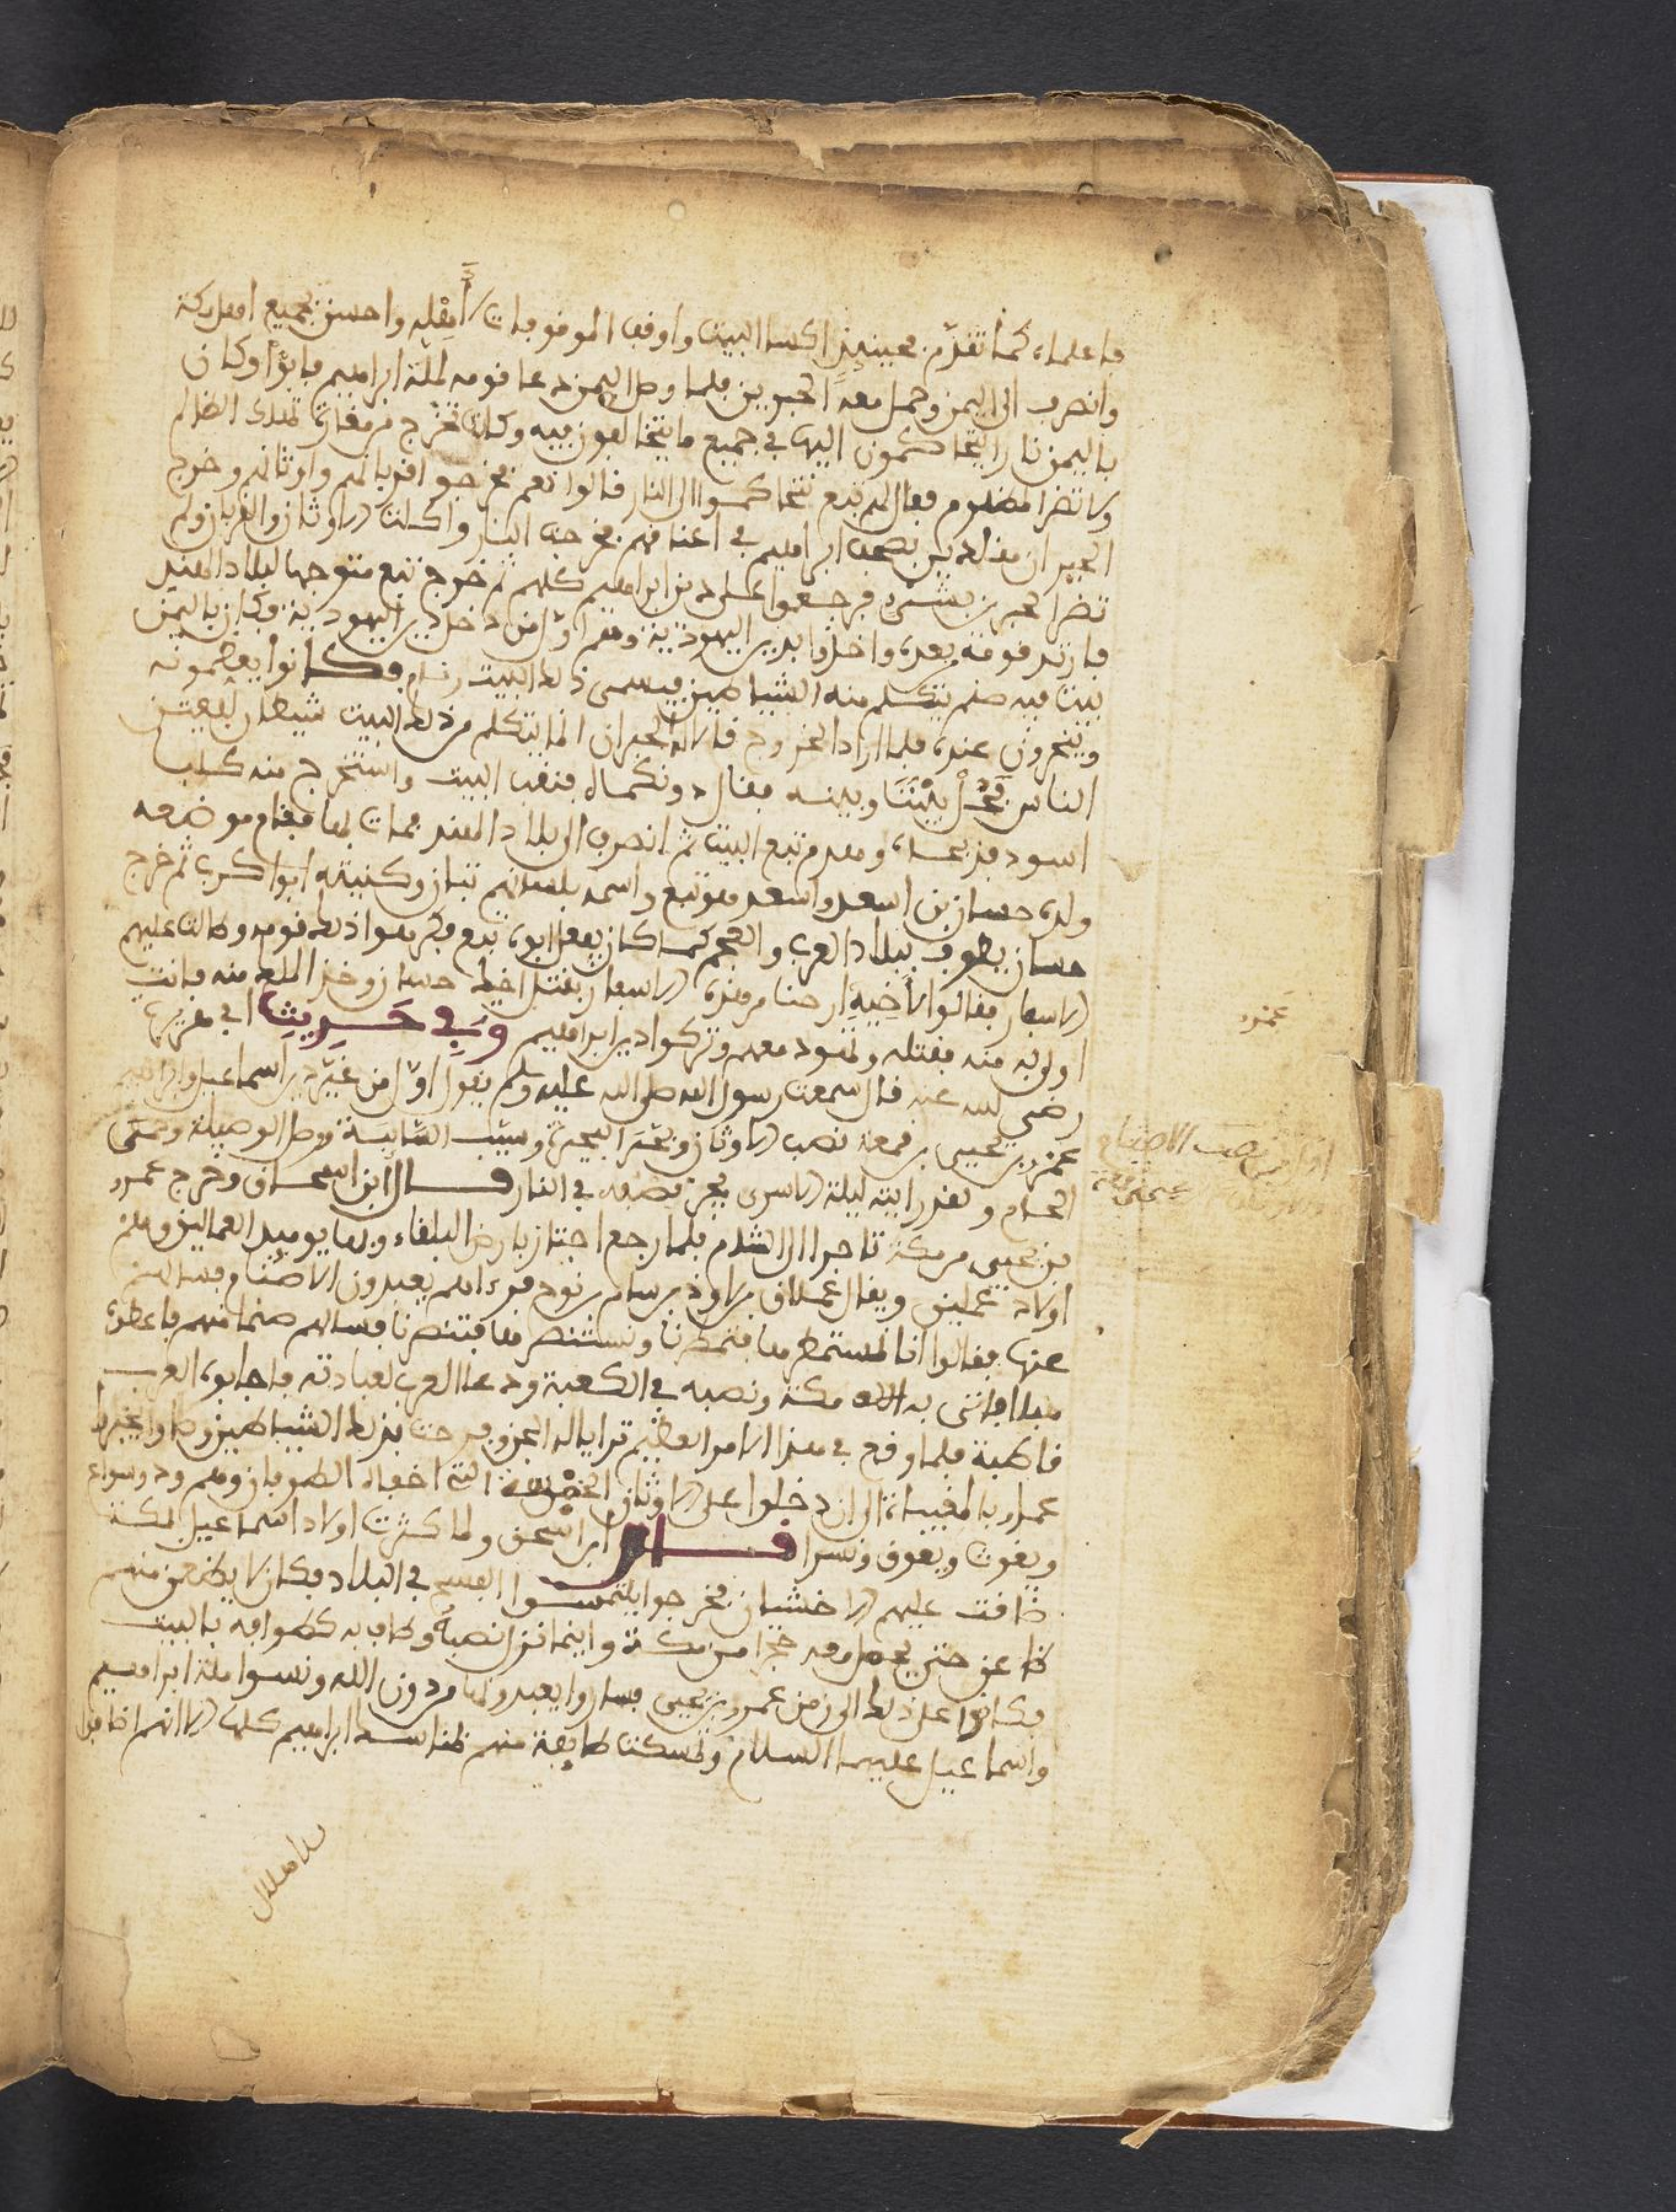 فاعلماه كما تقدم فحينيذ اكسا البيت واوقف الموقوفات لأهله واحسن لجميع اهل مكة
وانصرف الى اليمن وحمل معه الحبرين فلما وصل اليمن دعا قومه لملة ابراهيم فابوا وكان
باليمن نار ايتحاكمون اليها في جميع ما يتخالفون فيه وكانت تخرج من مغارة تهلك الظالم
ولا تضر المظلوم فقال لهم تبع نتحاكموا الى النار قالوا نعم فخرجوا افرباتهم واوثانهم وخرج
الحبران مقلدين بصحف ابراهيم في اعناقهم فخرجت النار واكلت الاوثان والقربان ولم
تضر الحبرين بشيء فرجعوا على دين ابراهيم كلهم ثم خرج تبع متوجها لبلاد الهند
فارتد قومه بعده واخذوا بدين اليهودية وهم اول من دخل دين اليهودية وكان باليمن
بيت فيه صنم يتكلم منه الشياطين فيسمى ذلك البيت رئام وكانوا يعظمونه
وينحرون عنده فلما اراد الخروج قال له الحبران انما يتكلم من ذلك البيت شيطان يفتن
الناس فخل بيننا وبينه فقال دونكماه فنقب البيت واستخرج منه كلب
اسود فذبحاه وهدم تبع البيت ثم انصرف الى بلاد الهند فمات بها فقام موضعه
ولده حسان بن اسعد واسعد هو تبع واسمه بلسانهم تبان وكنيته ابوا كرب ثم خرج
حسان يطوف ببلاد العرب والعجم كما كان يفعل ابوه تبع فكرهوا ذلك قومه وطالت عليهم
الاسفار فقالوا لأخيه ارحنا من هذه الاسفار بقتل اخيك حسان وخذ الملك منه فانت
اولى به منه فقتله وتهود معهم وتركوا دين ابراهيم وفي حديث ابي هريرة
رضي الله عنه قال سمعت رسول الله صلى الله عليه وسلم يقول اول من غير دين اسماعيل وابراهيم
عمرو بن لحيي بن قمعة نصب الاوثان وبحر البحيرة وسيب السائبة ووصل الوصيلة وحمى
الحام ولقد رايته ليلة الاسرى يجر قصبه في النار قال ابن اسحاق وخرج عمرو
بن لحيي من مكة تاجرا الى الشام فلما رجع اجتاز بارض البلقاء وبها يوميذ العماليق وهم
اولاد عمليق ويقال عملاق بن لاوذ بن سام بن نوح فرءاهم يعبدون الاصنام فسالهم
عنها فقالوا انا نستمطر بها فتمطرنا ونستنصر بها فتنصرنا فسالهم صنما منهم فاعطوه
هبلا فاتى به الى مكة ونصبه في الكعبة ودعا العرب لعبادته فاجابوه العرب
قاطبة فلما وقع في هذا الامر العظيم ترايا له الجن وفرحت بذلك الشياطين وصاروا يخبروا
عمرو بالمغيبات الى ان دخلوا على الاوثان الخمسة التي اخفاه الطوفان وهم ود وسواع
ويغوث ويعوق ونسرا قال ابن اسحق ولما كثرت اولاد اسماعيل بمكة
ضاقت عليهم الاخشبان فخرجوا يلتمسوا الفسح في البلاد فكان لا يظعن منهم
ظاعن حتى يحمل معه حجرا من مكة واينما نزل نصبه وطاف به كطوافه بالبيت
فكانوا على ذلك الى زمن عمرو بن لحيي فساروا يعبدونها من دون الله ونسوا ملة ابراهيم
واسماعيل عليهما السلام وتمسكت طايفة منهم بمناسك ابراهيم كلها الا انهم اضافوا
عمرو
اول من نصب الاصنام